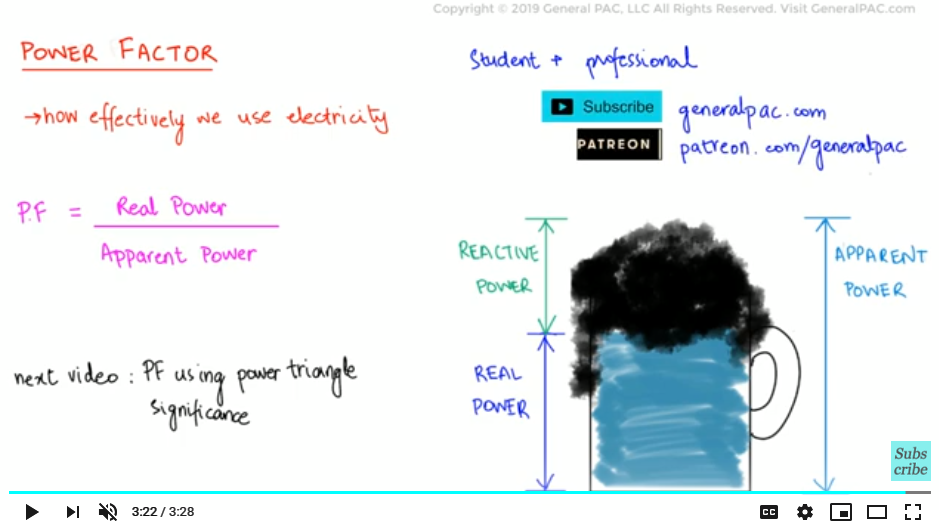 Copyright © 2019 General PAC, LLC All Rights Reserved. Visit GeneralPAC.com
POWER FACTOR
→how effectively we use electricity
P.F = Real Power
Apparent Power
next video : PF using power triangle
significance
Student + professional
Subscribe generalpac.com
PATREON patreon.com/generalpac
REACTIVE
POWER
REAL
POWER
APPARENT
POWER
Subs
cribe
3:22 / 3:28
CC